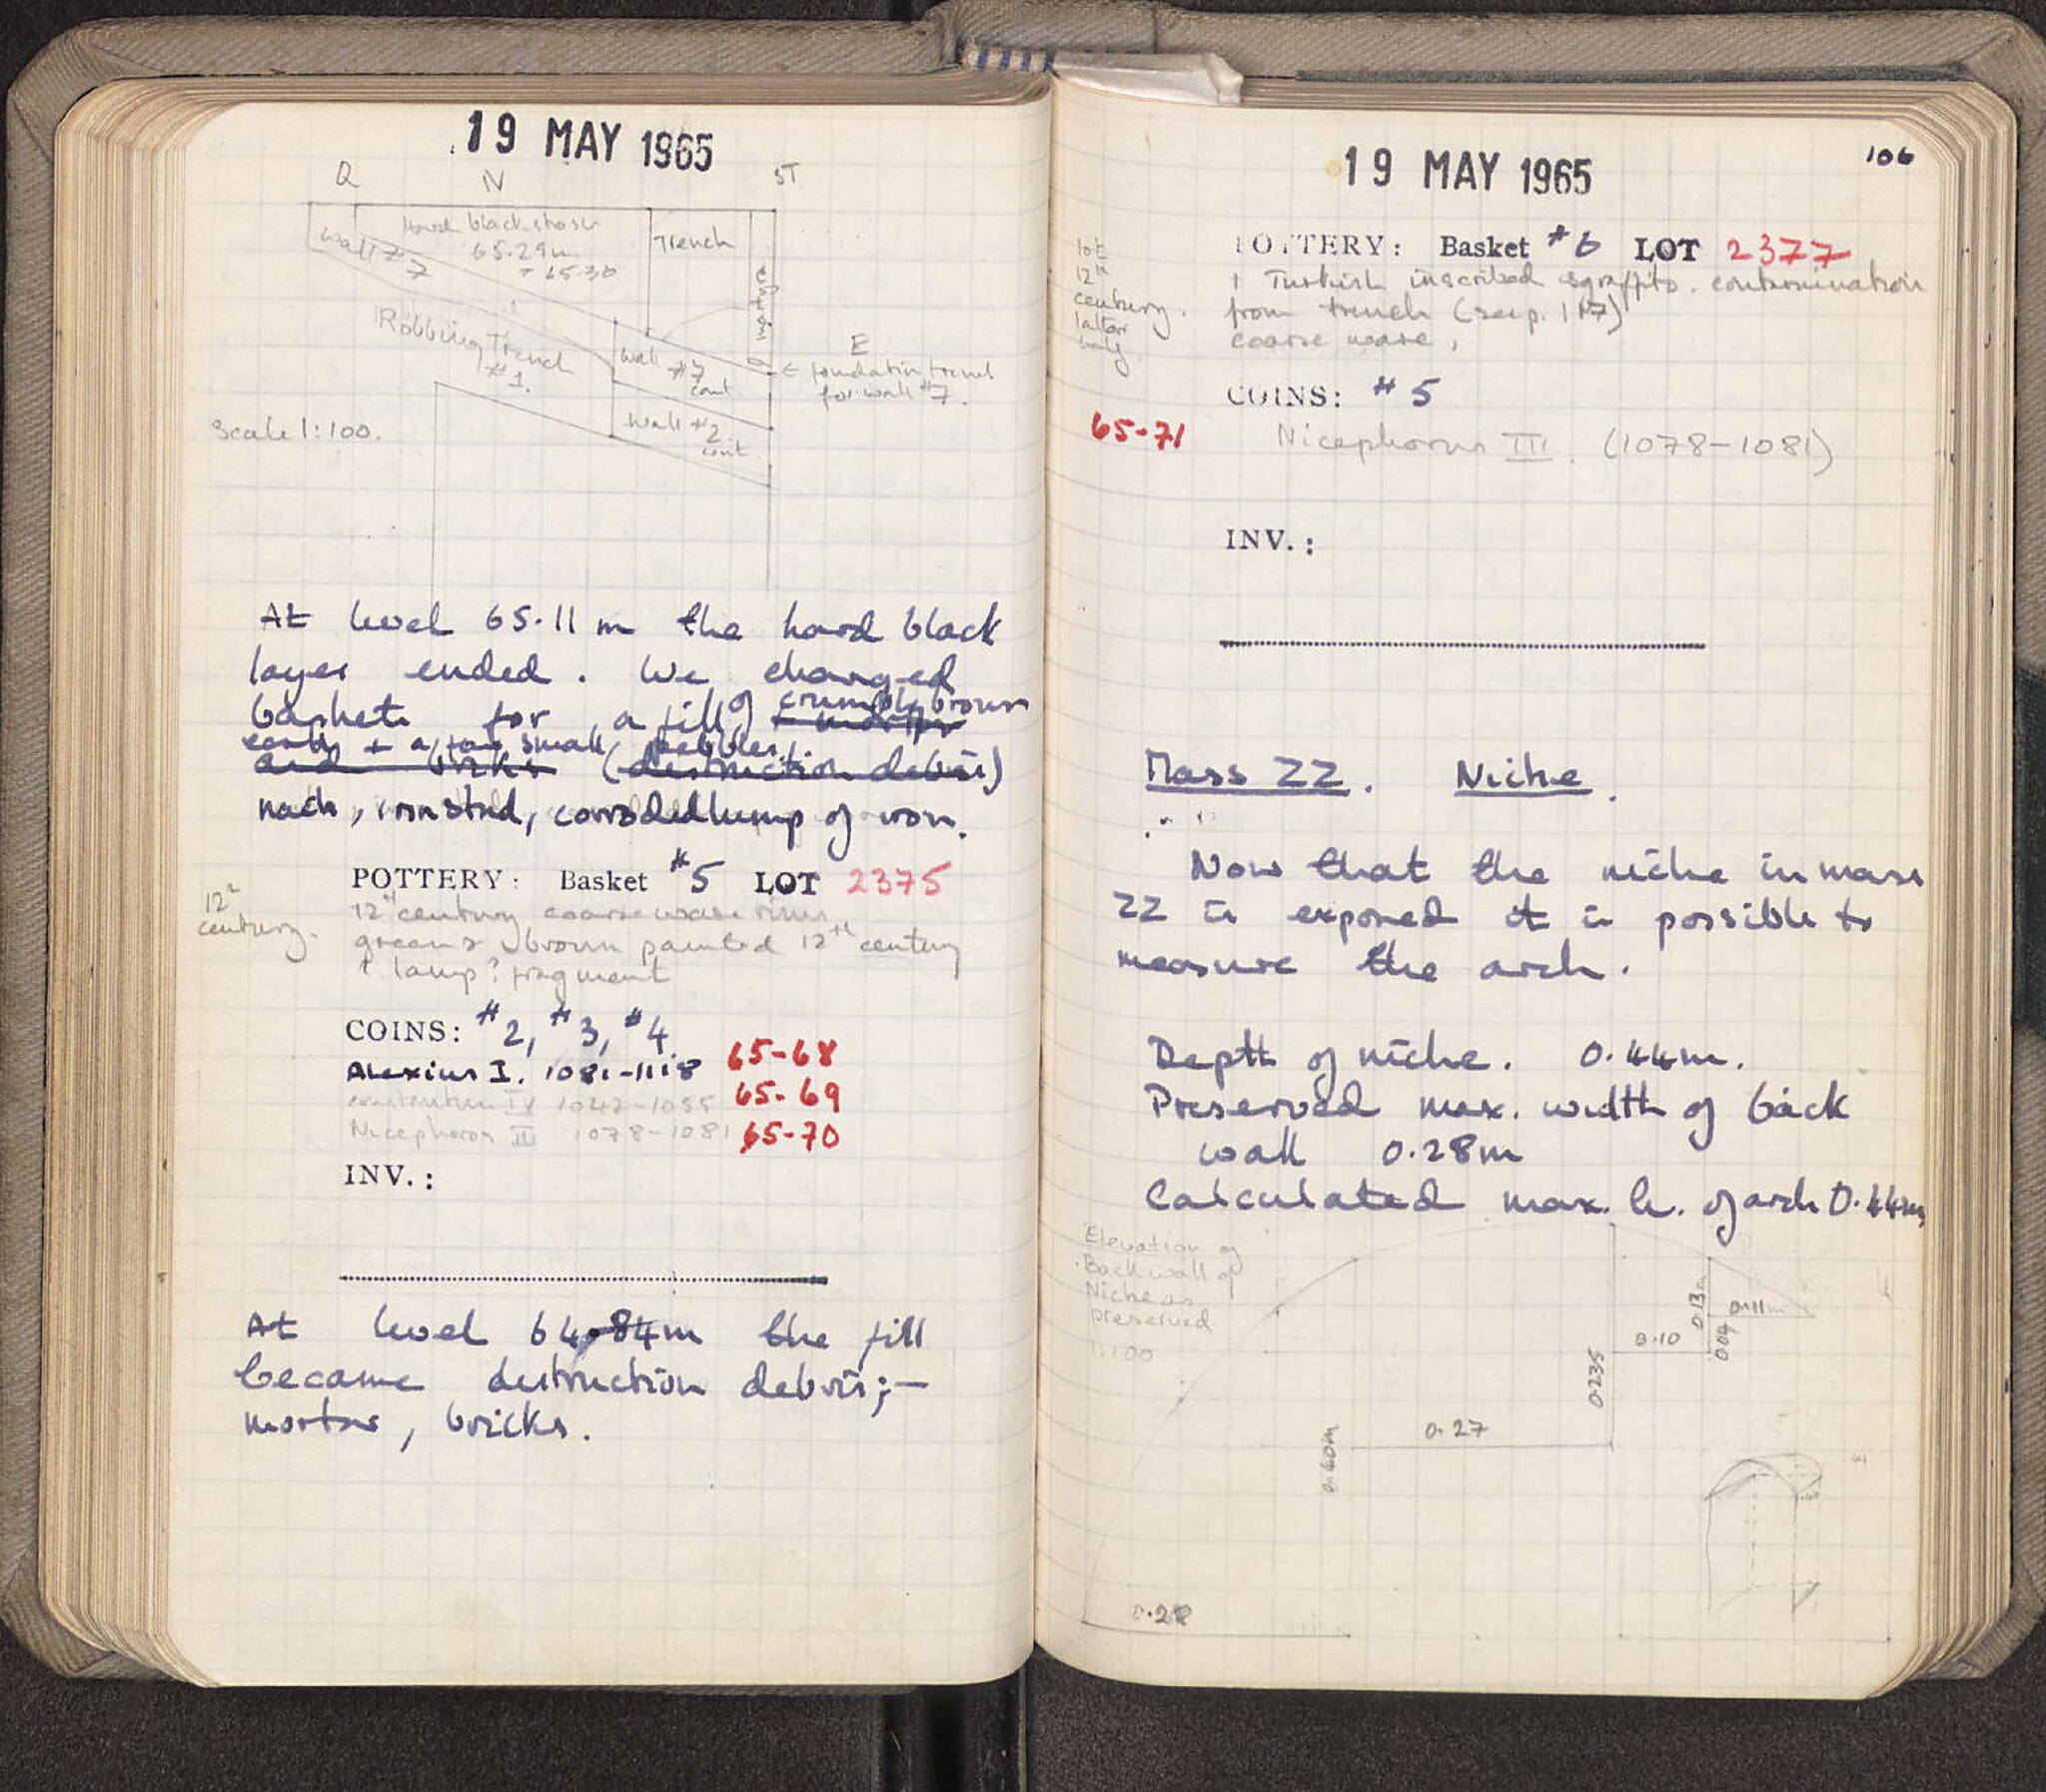 19 MAY 1965
Q N ST
Hard black stroser
65.29m
+ 65.30
Wall # 7
Trench
Robbing Trench
# 1.
Wall #7
cont
E
← foundation trench
for wall #7.
Wall #2
cont.
Scale 1:100.
At level 65.11 m the hard black
layer ended. We changed
baskets for a fill of crumbly brown
mortar
earth + a few small pebbles.
and bricks (destruction debris)
nails, iron stud, corroded lump of iron.
12th
century.
POTTERY: Basket #5 LOT 2375
12th century coarse ware rims
green & brown painted 12th century
1 lamp? fragment
COINS: #2, #3, #4
Alexius I. 1081-1118 65-68
Constantine IX 1042-1055 65-69
Nicephoros III 1078-1081 65-70
INV.:
At level 64.84m the fill
became destruction debris;-
mortar, bricks.
106
19 MAY 1965
lot
12th
century.
latter
half
POTTERY: Basket #6 LOT 2377
1 Turkish inscribed sgraffito. contamination
from trench (see p. 117)
coarse ware,
COINS: #5
65-71 Nicephorus III. (1078-1081)
INV.:
Mass 22. Niche.
Now that the niche in mass
22 is exposed it is possible to
measure the arch.
Depth of niche. 0.44m.
Preserved max. width of back
wall 0.28m
Calculated max. h. of arch 0.44m
Elevation of
Back wall of
Niche as
preserved
1:100
0.13m
0.11m
0.10
0.04
0.235
0.27
0.40m
0.28